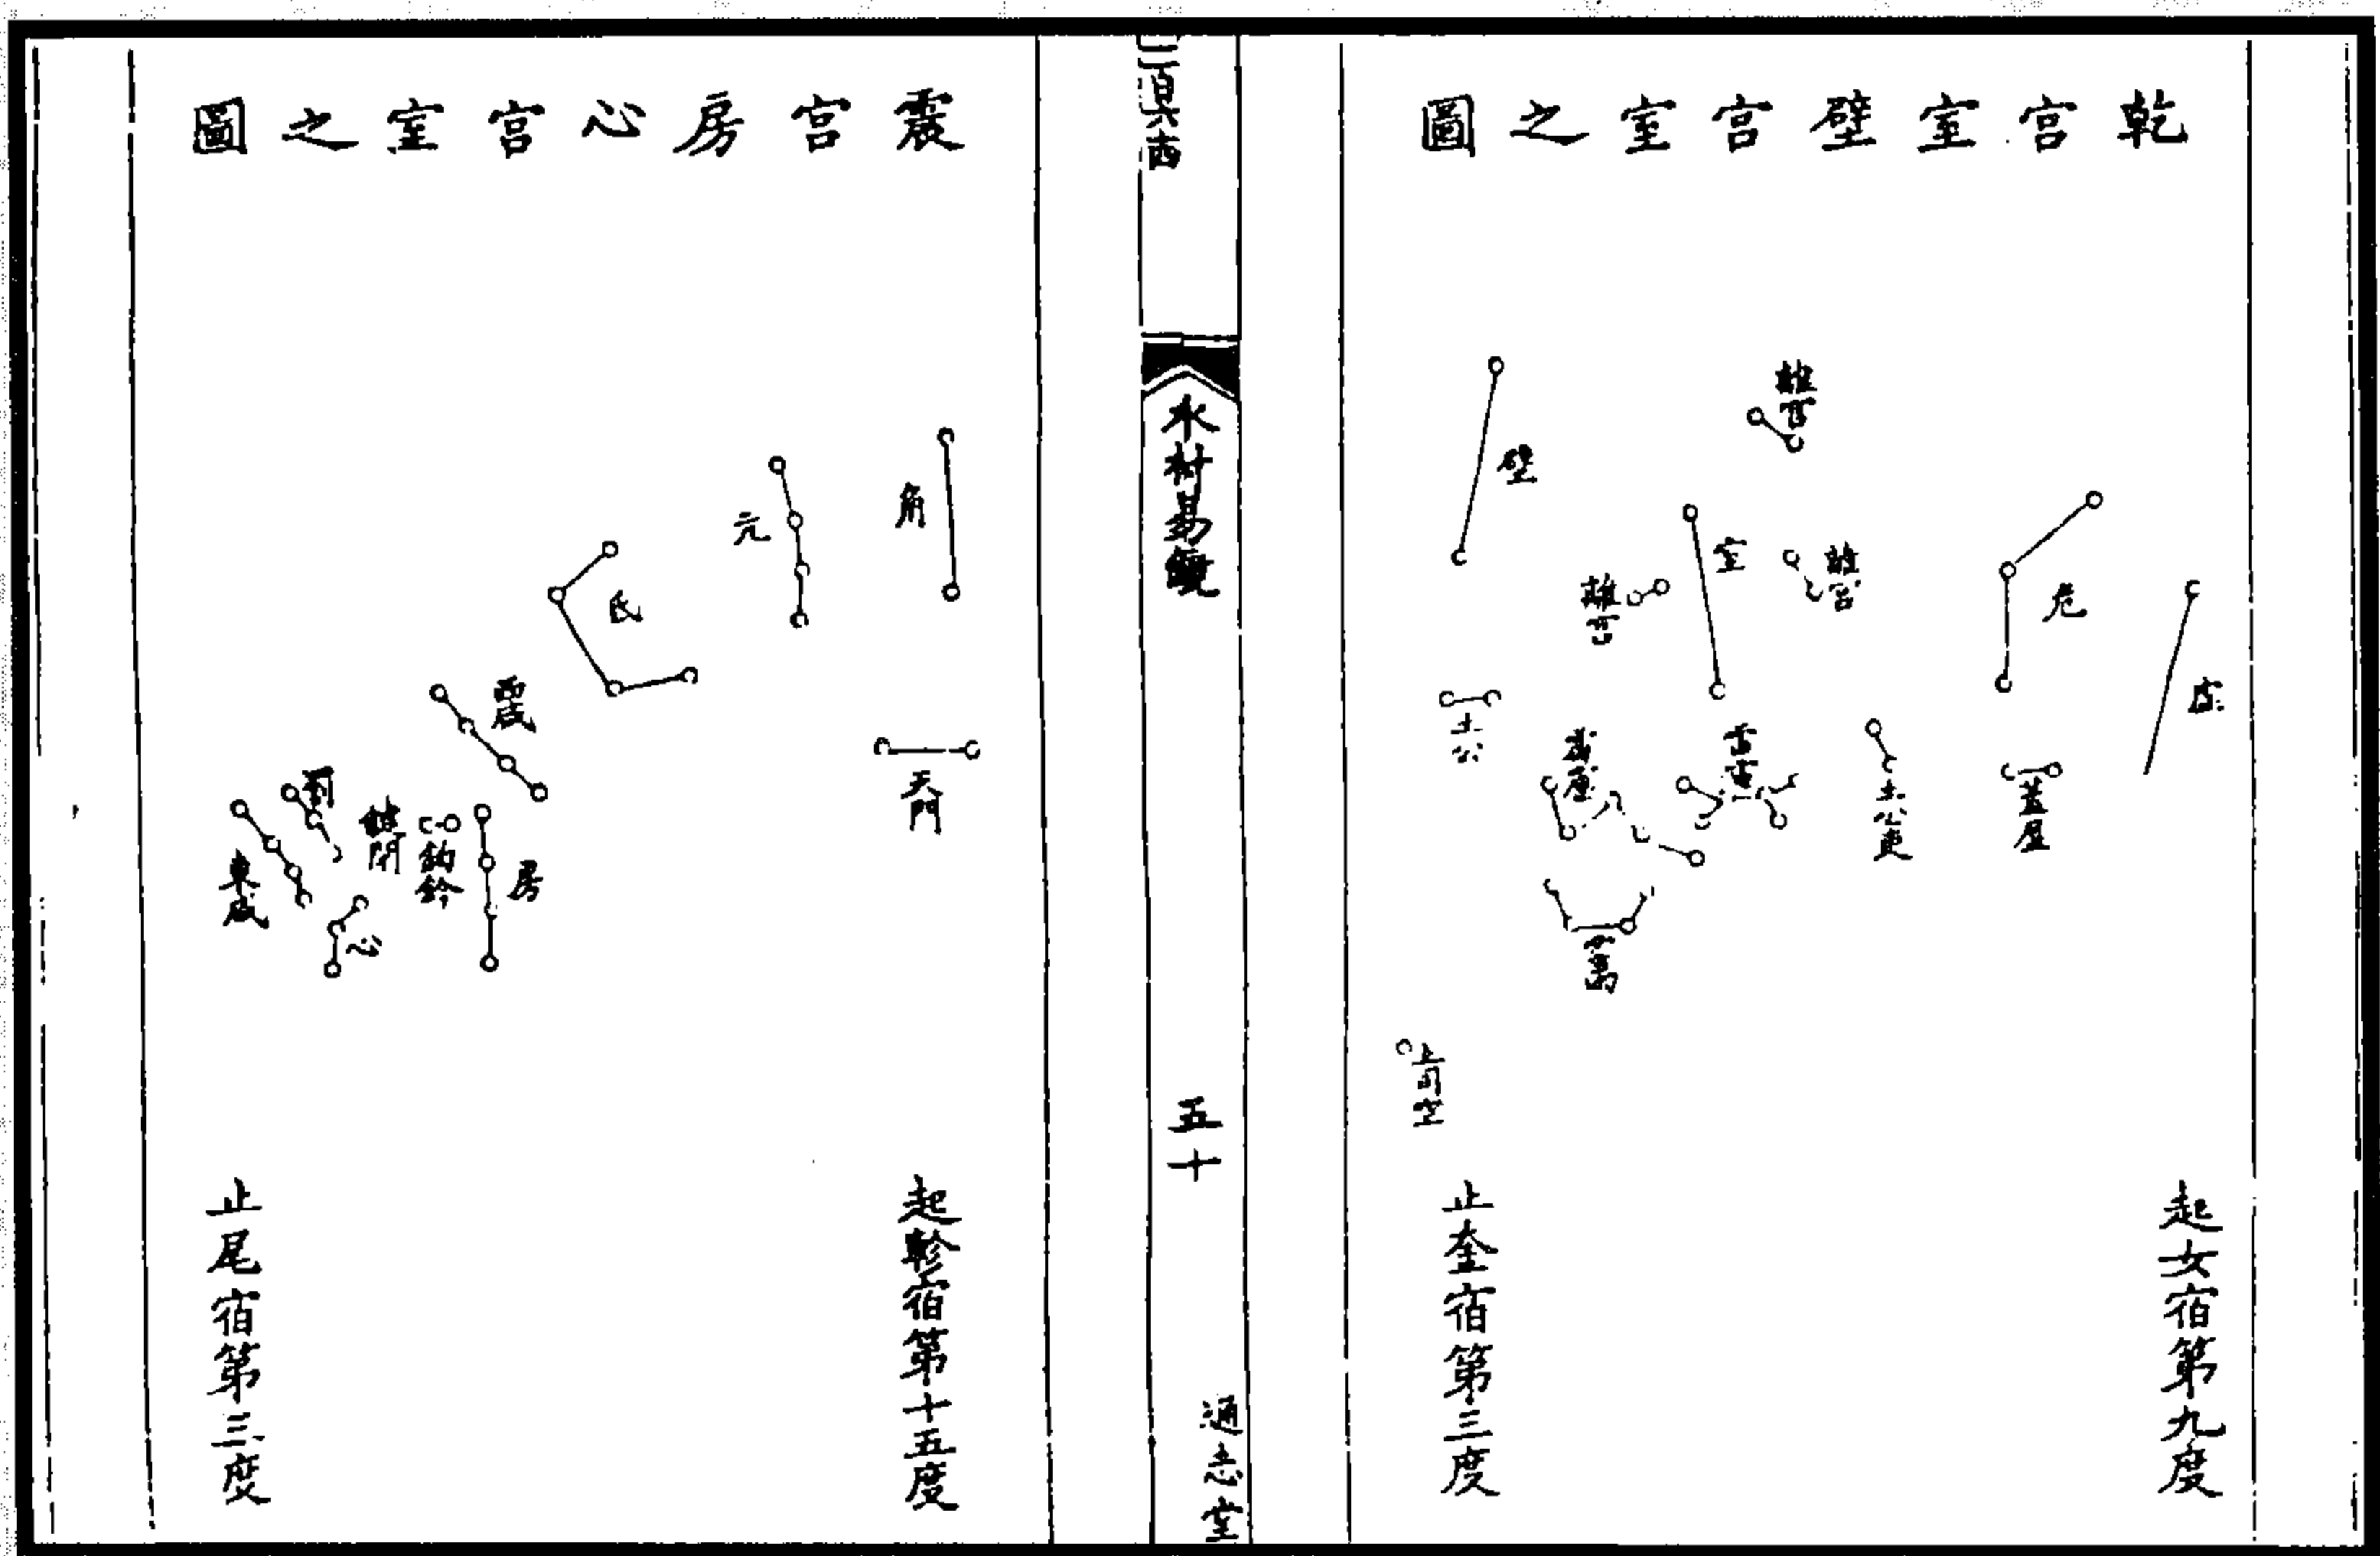 乾宮室壁宮室之圖
壁
離宮
室
離宮
離宮
危
虛
土公
雷電
土公吏
蓋屋
土司空
起女宿第九度
止奎宿第三度
水村易鏡
五十
通志堂
震宮房心宮室之圖
角
亢
氐
天門
罰
鍵閉
鉤鈐
房
心
東咸
起軫宿第十五度
止尾宿第三度